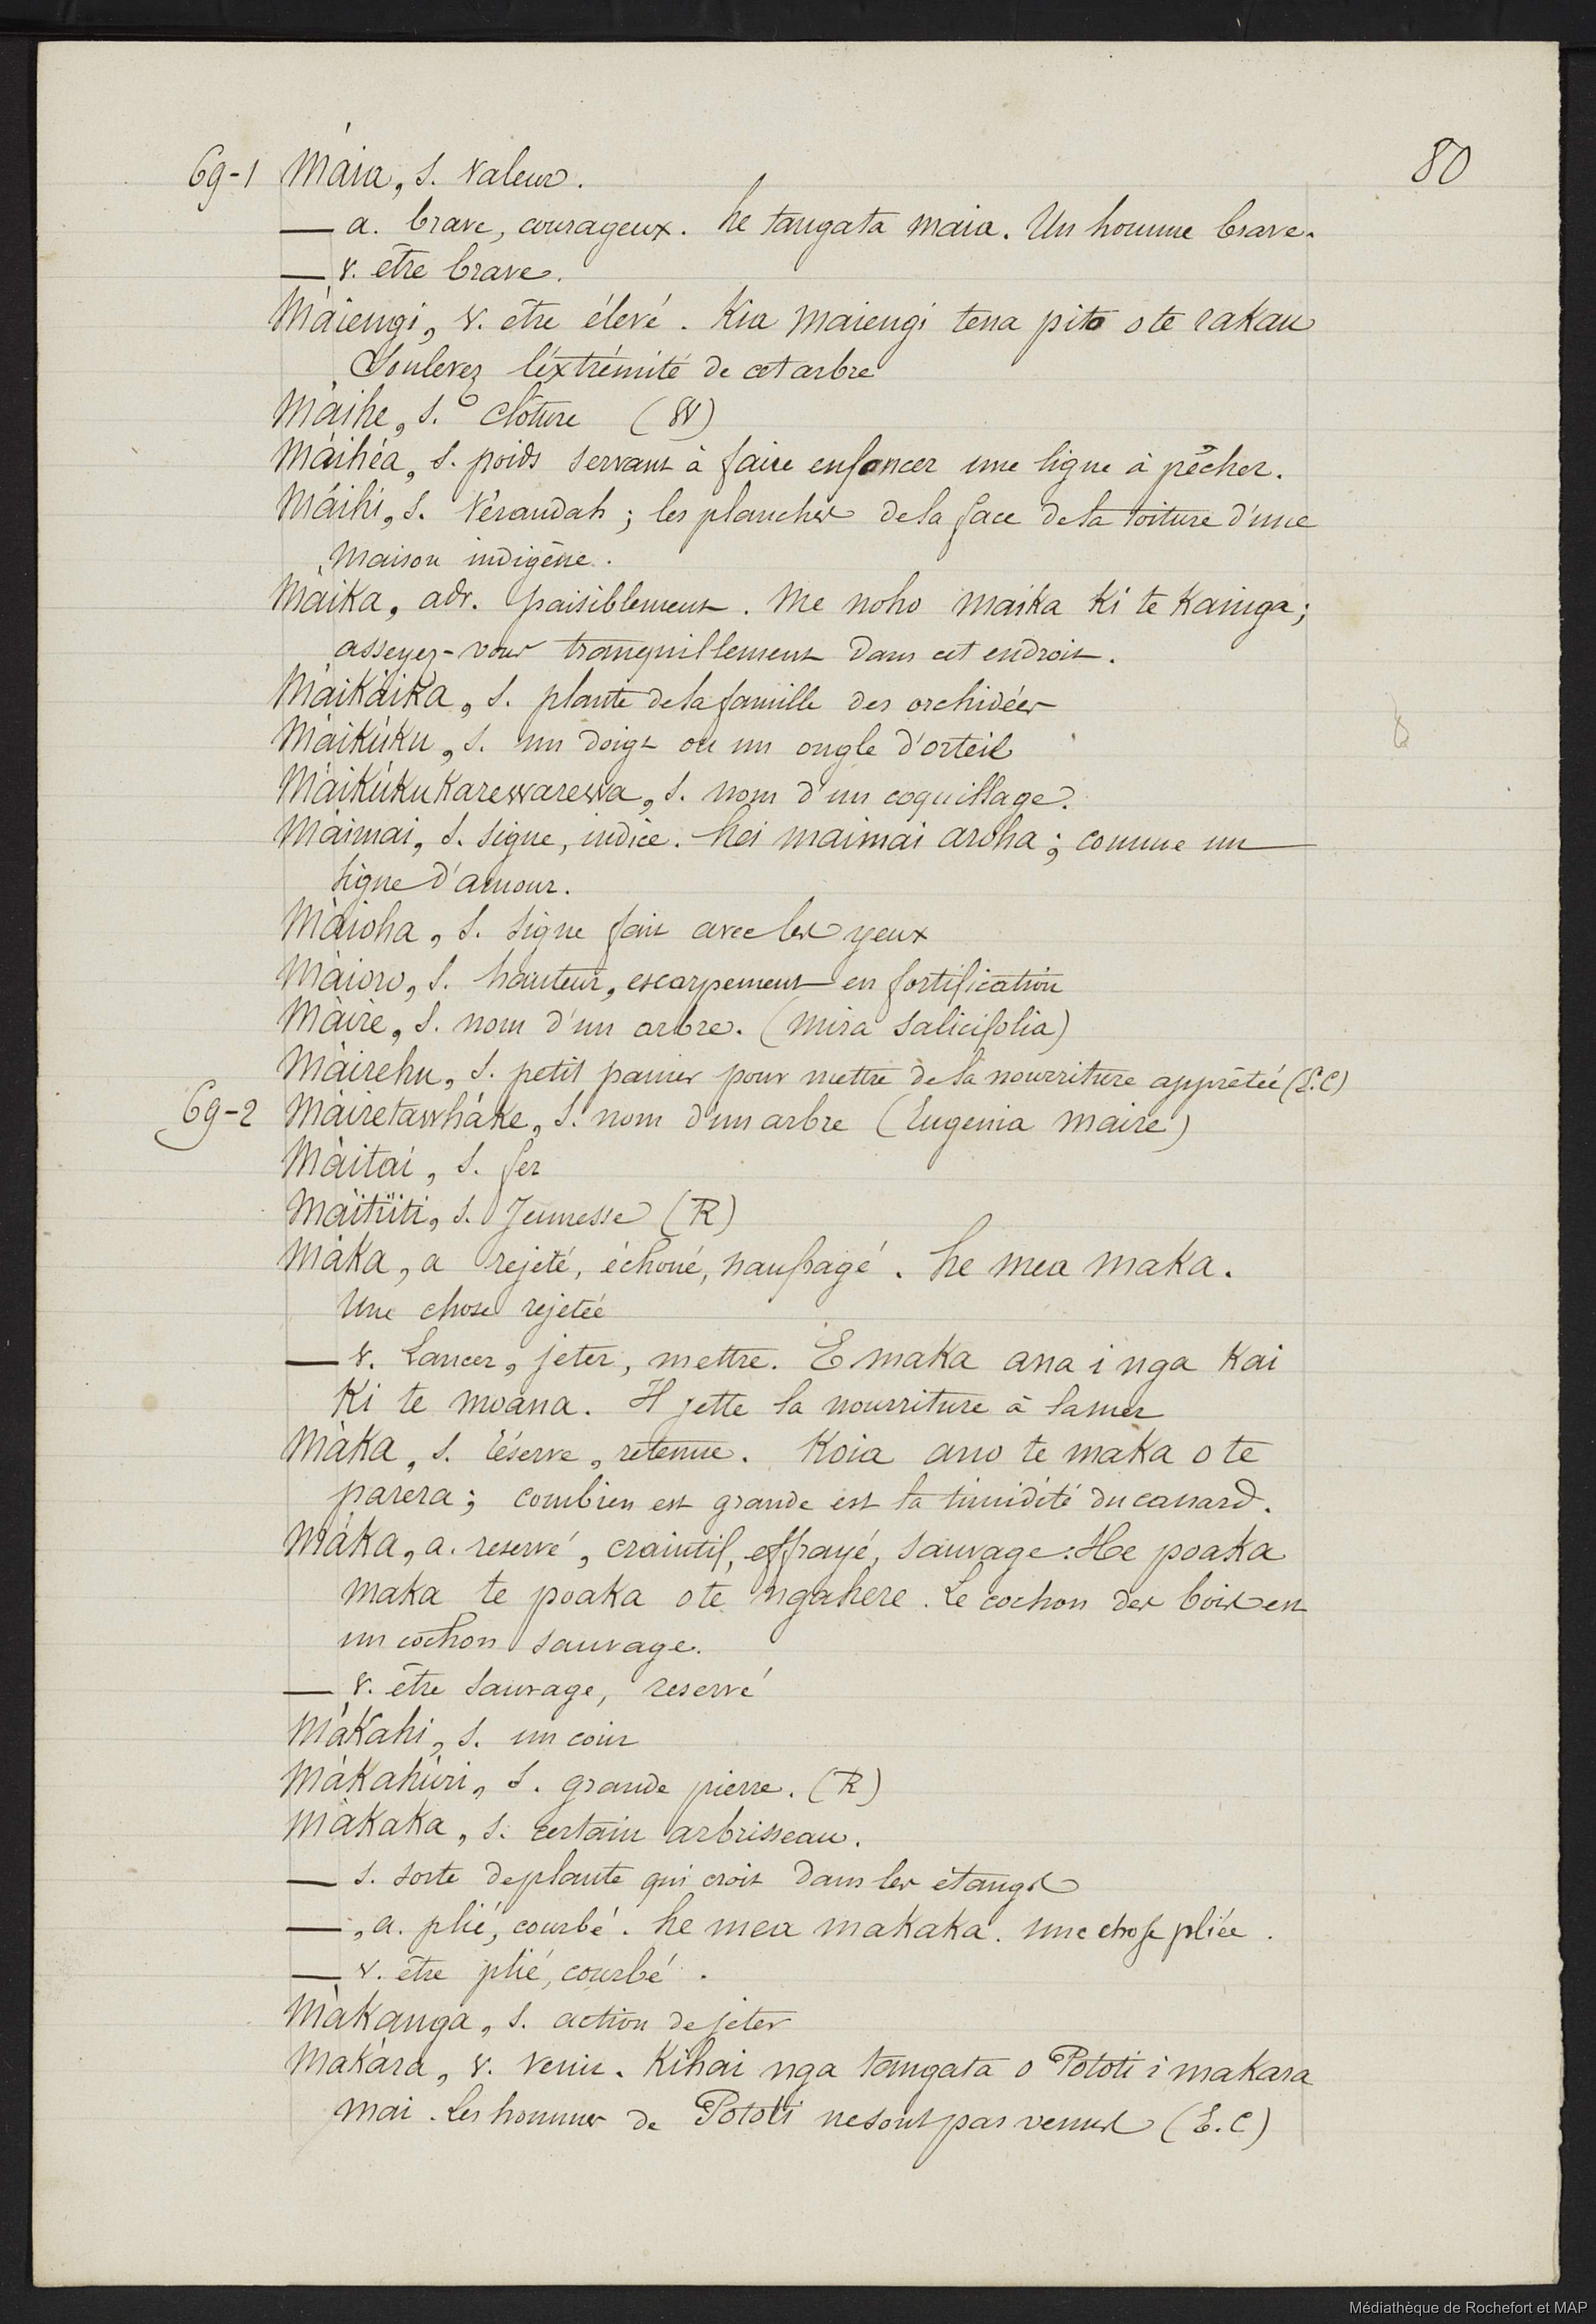 80
69-1 Máia, s. Valeur.
— a. brave, courageux. he tangata maia. Un homme brave.
— v. être brave.
Máiengi, v. être élevé. Kia maiengi tena pito o te rakau
Soulevez l'éxtrémité de cet arbre
Máihe, s. clôture (W)
Máihéa, s. poids servant à faire enfoncer une ligne à pêcher.
Máihi, s. Vérandah ; les planches de la face de la toiture d'une
maison indigène.
Máika, adv. paisiblement. Me noho maika ki te Kainga ;
asseyez-vous tranquillement dans cet endroit.
Máikáika, s. plante de la famille des orchidées
Máikúku, s. un doigt ou un ongle d'orteil
Máikúkukarewarewa, s. nom d'un coquillage.
Máimai, s. signe, indice. hei maimai aroha ; comme un
signe d'amour.
Máioha, s. signe fait avec les yeux
Máioro, s. hauteur, escarpement en fortification
Máire, s. nom d'un arbre. (mira salicifolia)
Máirehu, s. petit panier pour mettre de la nourriture apprêtée (E.C)
69-2 Máiretawháke, s. nom d'un arbre (Eugenia maire)
Máitai, s. fer
Máitiiti, s. Jeunesse (R)
Máka, a rejeté, échoué, naufragé. he mea maka.
Une chose rejetée
— v. Lancer, jeter, mettre. E maka ana i nga kai
Ki te moana. Il jette la nourriture à la mer
Máka, s. réserve, retenue. Koia ano te maka o te
parera ; combien est grande est la timidité du canard.
Máka, a. reservé, craintif, effrayé, sauvage : He poaka
maka te poaka o te ngahere. Le cochon des bois est
un cochon sauvage.
— v. être sauvage, reservé
Mákahi, s. un coin
Mákahúri, s. grande pierre. (R)
Mákaka, s. certain arbrisseau.
— s. sorte de plante qui croit dans les étangs
—, a. plié, courbé. he mea makaka. une chose pliée.
— v. être plié, courbé.
Mákanga, s. action de jeter
Makára, v. venir. Kihai nga tangata o Pototi i makara
mai. Les hommes de Pototi ne sont pas venus (E.C)
Médiathèque de Rochefort et MAP